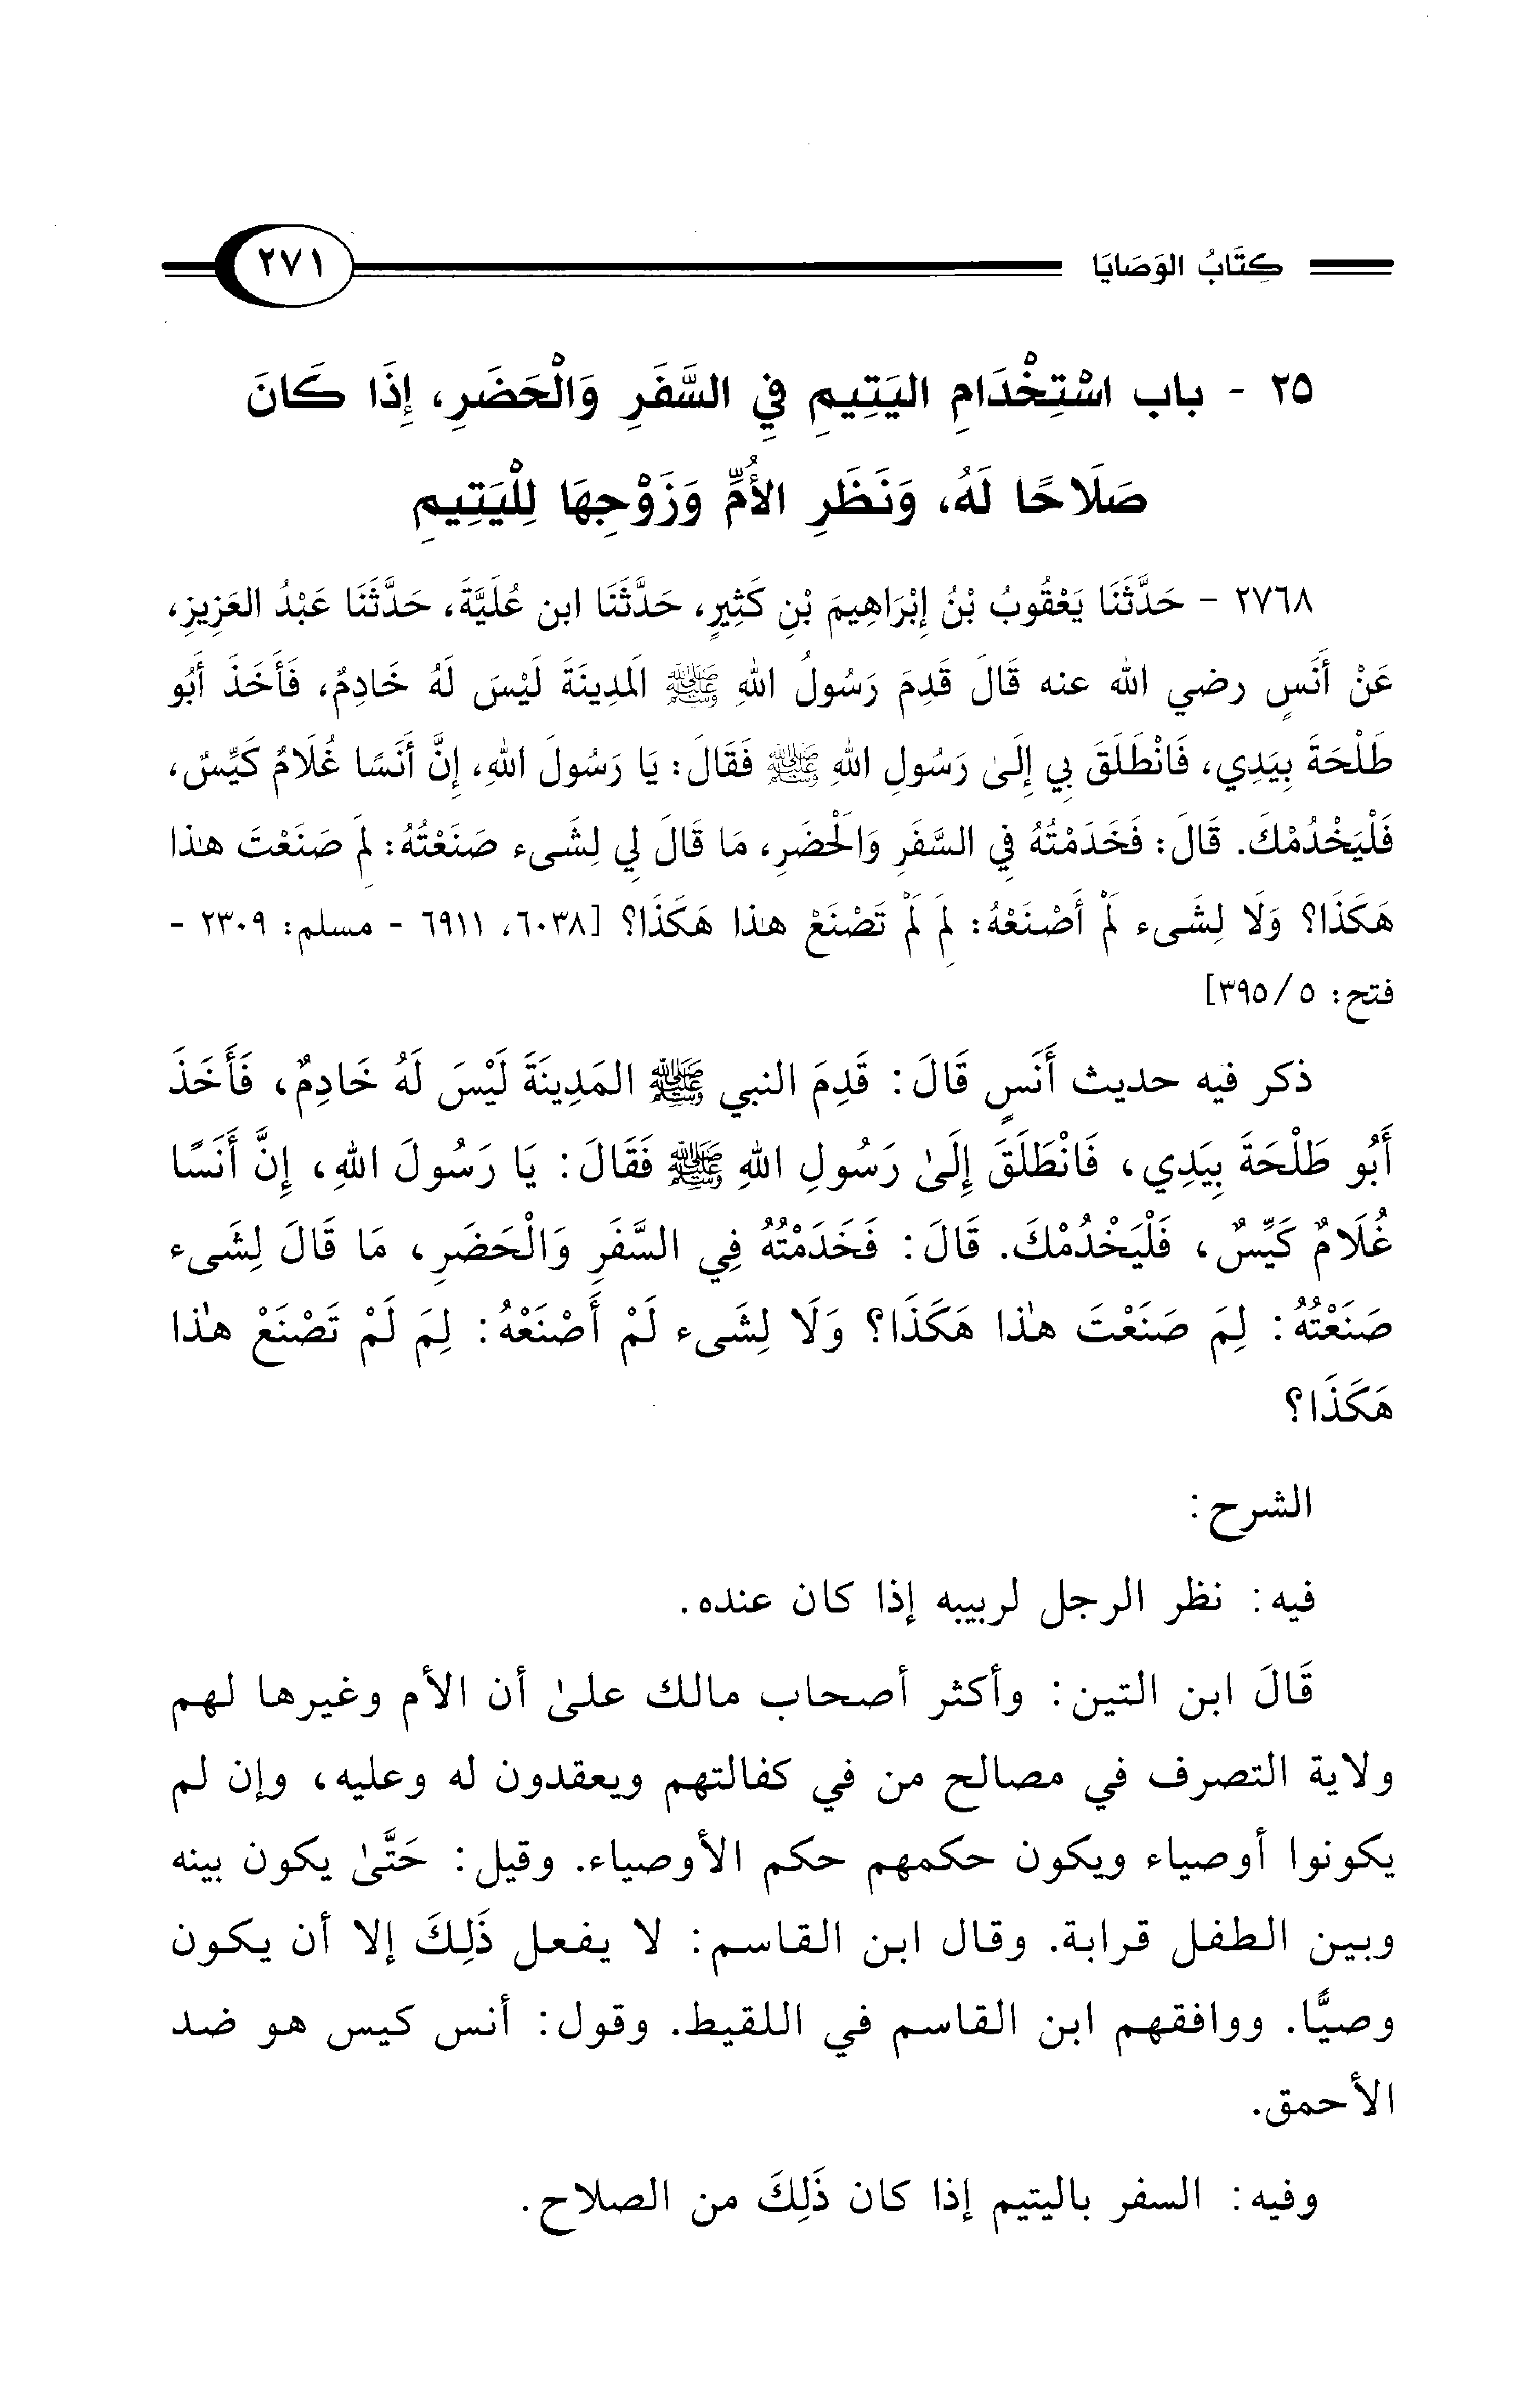 كِتَابُ الوَصَايَا ٢٧١
٢٥ - باب اسْتِخْدَامِ اليَتِيمِ فِي السَّفَرِ وَالْحَضَرِ، إِذَا كَانَ
صَلَاحًا لَهُ، وَنَظَرِ الأُمِّ وَزَوْجِهَا لِلْيَتِيمِ
٢٧٦٨ - حَدَّثَنَا يَعْقُوبُ بْنُ إِبْرَاهِيمَ بْنِ كَثِيرٍ، حَدَّثَنَا ابن عُلَيَّةَ، حَدَّثَنَا عَبْدُ العَزِيزِ،
عَنْ أَنَسٍ رضي الله عنه قَالَ قَدِمَ رَسُولُ اللهِ ﷺ المَدِينَةَ لَيْسَ لَهُ خَادِمٌ، فَأَخَذَ أَبُو
طَلْحَةَ بِيَدِي، فَانْطَلَقَ بِي إِلَىٰ رَسُولِ اللهِ ﷺ فَقَالَ: يَا رَسُولَ اللهِ، إِنَّ أَنَسًا غُلَامٌ كَيِّسٌ،
فَلْيَخْدُمْكَ. قَالَ: فَخَدَمْتُهُ فِي السَّفَرِ وَالْحَضَرِ، مَا قَالَ لِي لِشَىء صَنَعْتُهُ: لِمَ صَنَعْتَ هٰذا
هَكَذَا؟ وَلَا لِشَىء لَمْ أَصْنَعْهُ: لِمَ لَمْ تَصْنَعْ هٰذا هَكَذَا؟ [٦٠٣٨، ٦٩١١ - مسلم: ٢٣٠٩ -
فتح: ٥/ ٣٩٥]
ذكر فيه حديث أَنَسٍ قَالَ: قَدِمَ النبي ﷺ المَدِينَةَ لَيْسَ لَهُ خَادِمٌ، فَأَخَذَ
أَبُو طَلْحَةَ بِيَدِي، فَانْطَلَقَ إِلَىٰ رَسُولِ اللهِ ﷺ فَقَالَ: يَا رَسُولَ اللهِ، إِنَّ أَنَسًا
غُلَامٌ كَيِّسٌ، فَلْيَخْدُمْكَ. قَالَ: فَخَدَمْتُهُ فِي السَّفَرِ وَالْحَضَرِ، مَا قَالَ لِشَىء
صَنَعْتُهُ: لِمَ صَنَعْتَ هٰذا هَكَذَا؟ وَلَا لِشَىء لَمْ أَصْنَعْهُ: لِمَ لَمْ تَصْنَعْ هٰذا
هَكَذَا؟
الشرح:
فيه: نظر الرجل لربيبه إذا كان عنده.
قَالَ ابن التين: وأكثر أصحاب مالك علىٰ أن الأم وغيرها لهم
ولاية التصرف في مصالح من في كفالتهم ويعقدون له وعليه، وإن لم
يكونوا أوصياء ويكون حكمهم حكم الأوصياء. وقيل: حَتَّىٰ يكون بينه
وبين الطفل قرابة. وقال ابن القاسم: لا يفعل ذَلِكَ إلا أن يكون
وصيًّا. ووافقهم ابن القاسم في اللقيط. وقول: أنس كيس هو ضد
الأحمق.
وفيه: السفر باليتيم إذا كان ذَلِكَ من الصلاح.